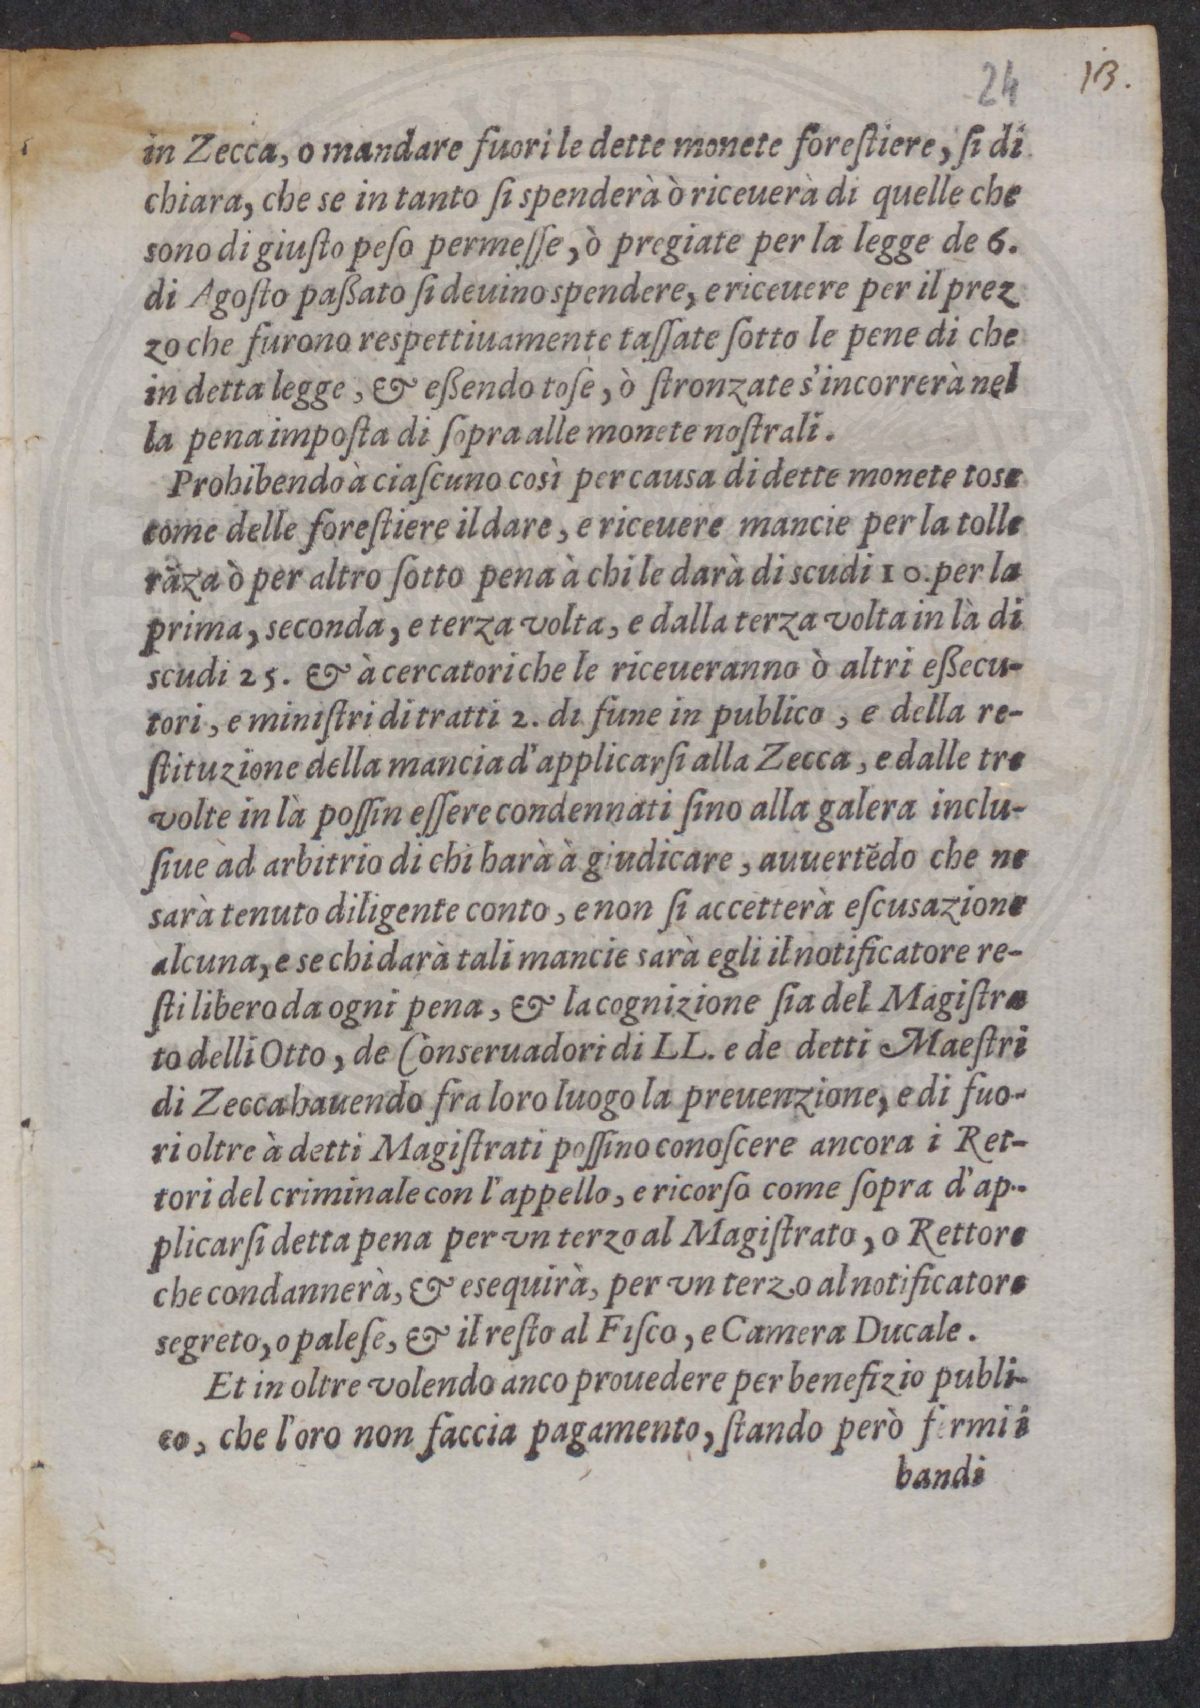 24 13.
in Zecca, o mandare fuori le dette monete foreſtiere, ſi di
chiara, che se in tanto ſi spenderà ò riceuerà di quelle che
sono di giuſto peſo permeſſe, ò pregiate per la legge de 6.
di Agoſto paßato ſi deuino spendere, e riceuere per il prez
zo che furono respettiuamente taſſate ſotto le pene di che
in detta legge, & eßendo toſe, ò ſtronzate s'incorrerà nel
la pena impoſta di ſopra alle monete noſtrali.
Prohibendo à ciaſcuno così per causa di dette monete tose
come delle foreſtiere il dare, e riceuere mancie per la tolle
rãza ò per altro ſotto pena à chi le darà di scudi 10. per la
prima, seconda, e terza volta, e dalla terza volta in là di
scudi 25. & à cercatori che le riceueranno ò altri eßecu-
tori, e miniſtri di tratti 2. di fune in publico, e della re-
ſtituzione della mancia d'applicarſi alla Zecca, e dalle tre
volte in là poſſin eſſere condennati ſino alla galera inclu-
ſiue àd arbitrio di chi harà à giudicare, auuertẽdo che ne
sarà tenuto diligente conto, e non ſi accetterà eſcusazione
alcuna, e se chi darà tali mancie sarà egli il notificatore re-
ſti libero da ogni pena, & la cognizione ſia del Magiſtra
to delli Otto, de Conseruadori di LL. e de detti Maeſtri
di Zecca hauendo fra loro luogo la preuenzione, e di fuo-
ri oltre à detti Magiſtrati poſſino conoſcere ancora i Ret-
tori del criminale con l'appello, e ricorſo come ſopra d'ap-
plicarſi detta pena per vn terzo al Magiſtrato, o Rettore
che condannerà, & esequirà, per vn terzo al notificatore
segreto, o paleſe, & il reſto al Fiſco, e Camera Ducale.
Et in oltre volendo anco prouedere per benefizio publi-
co, che l'oro non faccia pagamento, ſtando però fermi i
bandi